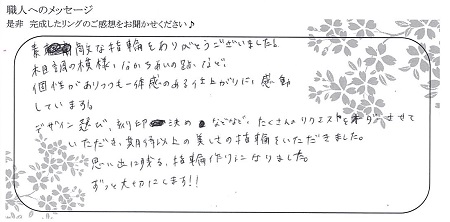 職人へのメッセージ
是非 完成したリングのご感想をお聞かせください♪
素敵な指輪をありがとうございました。
木目調の模様、なかちあいの跡など、
個性がありつつも一体感のある仕上がりに感動
しています。
デザイン選び、刻印決めなどなど、たくさんのリクエストをさせて
いただき、期待以上の美しさの指輪をいただきました。
思い出に残る、指輪作りになりました。
ずっと大切にします!!